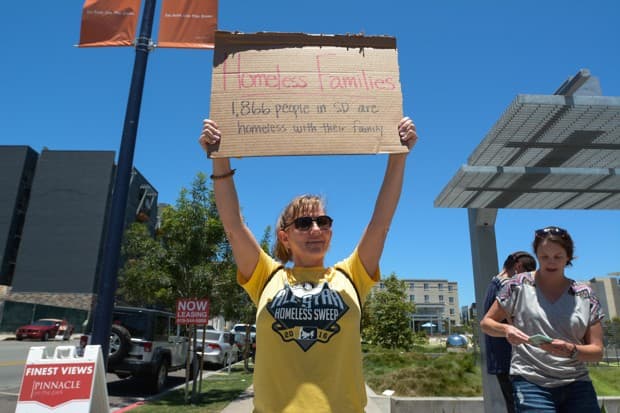 Homeless Families
1,866 people in SD are
homeless with their family
ALL STAR
HOMELESS SWEEP
2016
NOW
LEASING
FINEST VIEWS
PINNACLE